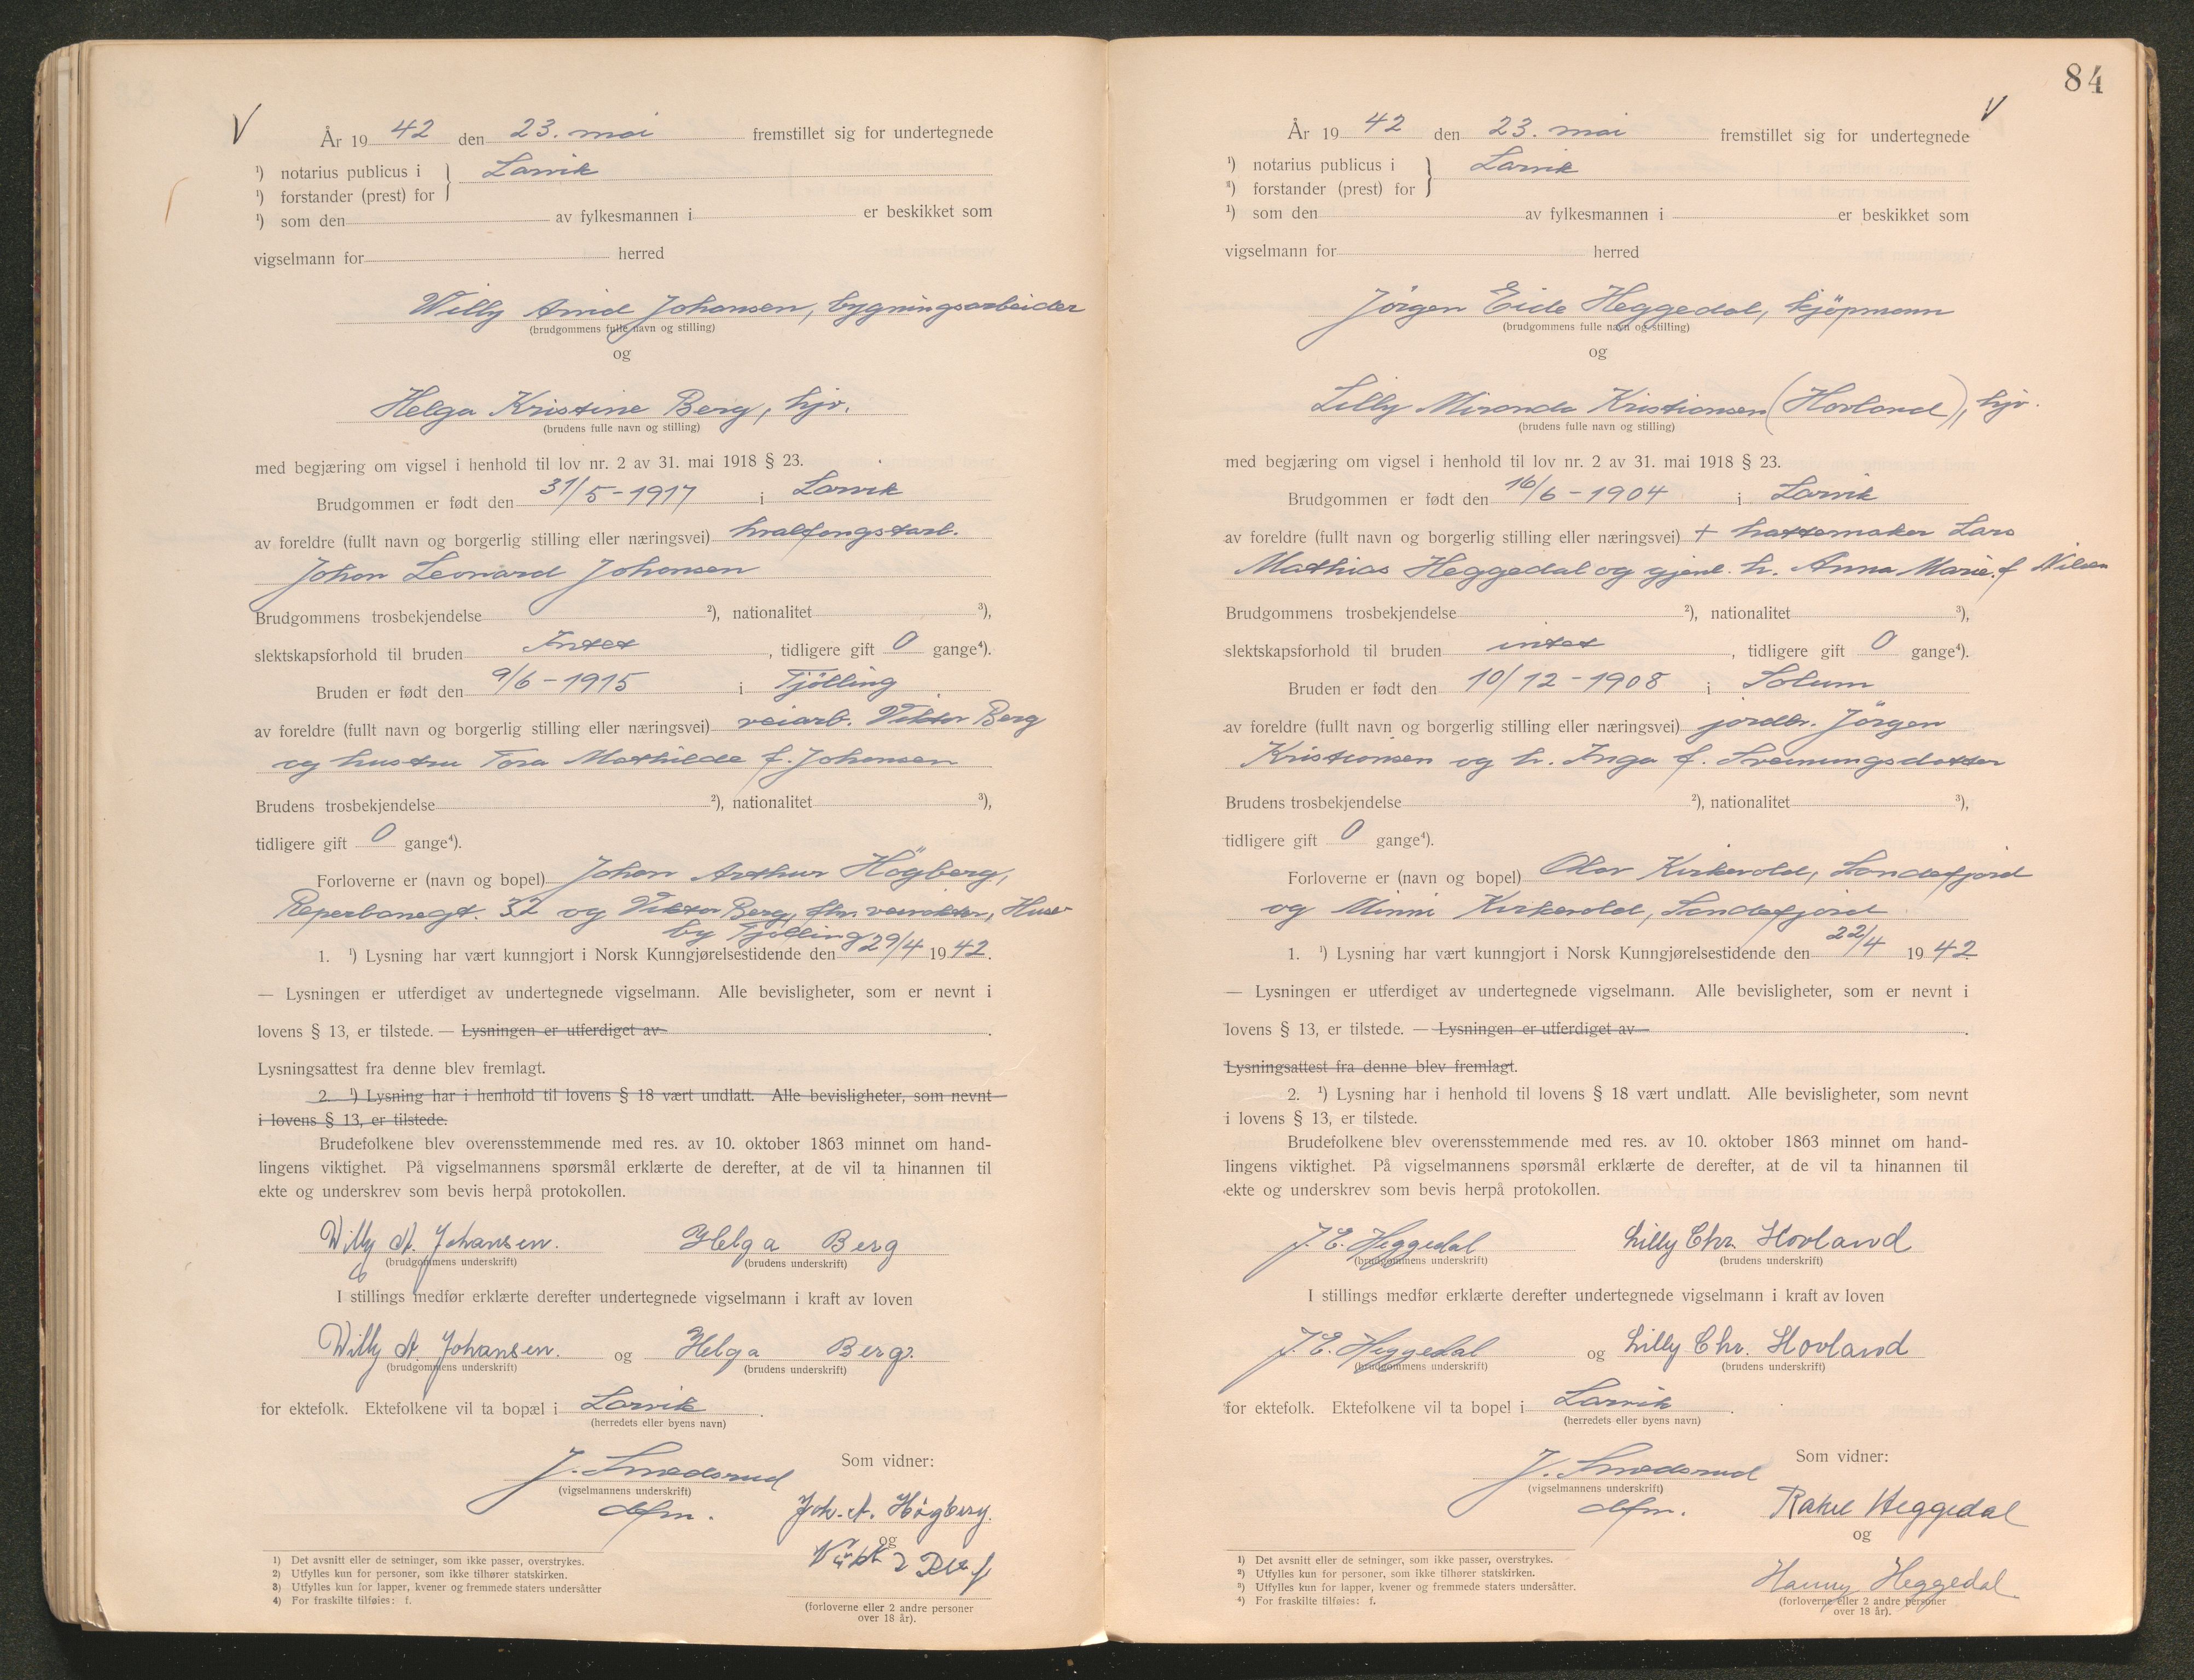 År 1942 den 23. mai fremstillet sig for undertegnede
¹) notarius publicus i } Larvik
¹) forstander (prest) for
¹) som den av fylkesmannen i er beskikket som
vigselmann for herred
Willy Arvid Johansen, bygningsarbeider
(brudgommens fulle navn og stilling)
og
Helga Kristine Berg, hjv.
(brudens fulle navn og stilling)
med begjæring om vigsel i henhold til lov nr. 2 av 31. mai 1918 § 23.
Brudgommen er født den 31/5-1917 i Larvik
av foreldre (fullt navn og borgerlig stilling eller næringsvei) hvalfangstarb.
Johan Leonard Johansen
Brudgommens trosbekjendelse ²), nationalitet ³),
slektskapsforhold til bruden Intet, tidligere gift 0 gange⁴).
Bruden er født den 9/6-1915 i Tjölling
av foreldre (fullt navn og borgerlig stilling eller næringsvei) veiarb. Viktor Berg
og hustru Tora Mathilde f. Johansen
Brudens trosbekjendelse ²), nationalitet ³),
tidligere gift 0 gange⁴).
Forloverne er (navn og bopel) Johan Arthur Högberg,
Reperbanegt. 32 og Viktor Berg, Huse-
by Tjölling
1. ¹) Lysning har vært kunngjort i Norsk Kunngjørelsestidende den 29/4 1942.
— Lysningen er utferdiget av undertegnede vigselmann. Alle bevisligheter, som er nevnt i
lovens § 13, er tilstede. — Lysningen er utferdiget av .
Lysningsattest fra denne blev fremlagt.
2. ¹) Lysning har i henhold til lovens § 18 vært undlatt. Alle bevisligheter, som nevnt
i lovens § 13, er tilstede.
Brudefolkene blev overensstemmende med res. av 10. oktober 1863 minnet om hand-
lingens viktighet. På vigselmannens spørsmål erklærte de derefter, at de vil ta hinannen til
ekte og underskrev som bevis herpå protokollen.
Willy A. Johansen. Helga Berg
(brudgommens underskrift) (brudens underskrift)
I stillings medfør erklærte derefter undertegnede vigselmann i kraft av loven
Willy A. Johansen. og Helga Berg.
(brudgommens underskrift) (brudens underskrift)
for ektefolk. Ektefolkene vil ta bopæl i Larvik.
(herredets eller byens navn)
J. Smedsrud Som vidner:
(vigselmannens underskrift)
dsfm. Joh. A. Högberg.
og
(forloverne eller 2 andre personer
over 18 år).
1) Det avsnitt eller de setninger, som ikke passer, overstrykes.
2) Utfylles kun for personer, som ikke tilhører statskirken.
3) Utfylles kun for lapper, kvener og fremmede staters undersåtter
4) For fraskilte tilføies: f.
84
År 1942 den 23. mai fremstillet sig for undertegnede
¹) notarius publicus i } Larvik
¹) forstander (prest) for
¹) som den av fylkesmannen i er beskikket som
vigselmann for herred
Jörgen Eide Heggedal, kjöpmann
(brudgommens fulle navn og stilling)
og
Lilly Miranda Kristiansen (Hovland), hjv.
(brudens fulle navn og stilling)
med begjæring om vigsel i henhold til lov nr. 2 av 31. mai 1918 § 23.
Brudgommen er født den 16/6-1904 i Larvik
av foreldre (fullt navn og borgerlig stilling eller næringsvei) + hattemaker Lars
Mathias Heggedal og gjenl. h. Anna Marie f Nilsen
Brudgommens trosbekjendelse ²), nationalitet ³),
slektskapsforhold til bruden intet, tidligere gift 0 gange⁴).
Bruden er født den 10/12-1908 i Solum
av foreldre (fullt navn og borgerlig stilling eller næringsvei) jordbr. Jörgen
Kristiansen og h. Inga f. Sveinungsdatter
Brudens trosbekjendelse ²), nationalitet ³),
tidligere gift 0 gange⁴).
Forloverne er (navn og bopel) Olav Kirkevold, Sandefjord
og Minni Kirkevold, Sandefjord
1. ¹) Lysning har vært kunngjort i Norsk Kunngjørelsestidende den 22/4 1942
— Lysningen er utferdiget av undertegnede vigselmann. Alle bevisligheter, som er nevnt i
lovens § 13, er tilstede. — Lysningen er utferdiget av .
Lysningsattest fra denne blev fremlagt.
2. ¹) Lysning har i henhold til lovens § 18 vært undlatt. Alle bevisligheter, som nevnt
i lovens § 13, er tilstede.
Brudefolkene blev overensstemmende med res. av 10. oktober 1863 minnet om hand-
lingens viktighet. På vigselmannens spørsmål erklærte de derefter, at de vil ta hinannen til
ekte og underskrev som bevis herpå protokollen.
J. E. Heggedal Lilly Chr. Hovland
(brudgommens underskrift) (brudens underskrift)
I stillings medfør erklærte derefter undertegnede vigselmann i kraft av loven
J. E. Heggedal og Lilly Chr. Hovland
(brudgommens underskrift) (brudens underskrift)
for ektefolk. Ektefolkene vil ta bopel i Larvik.
(herredets eller byens navn)
J. Smedsrud Som vidner:
(vigselmannens underskrift)
dsfm. Rakel Heggedal
og
Hanny Heggedal
(forloverne eller 2 andre personer
over 18 år).
1) Det avsnitt eller de setninger, som ikke passer, overstrykes.
2) Utfylles kun for personer, som ikke tilhører statskirken.
3) Utfylles kun for lapper, kvener og fremmede staters undersåtter.
4) For fraskilte tilføies: f.